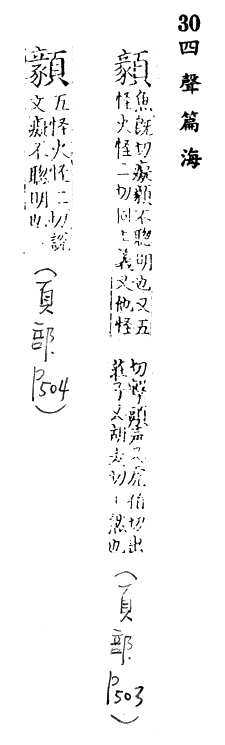 30 四聲篇海
顡 魚既切癡顡不聰明也又五
怪火怪二切同上義又他怪
切 頭声又虎伯切出
莊子又胡 切 也
(頁部 P503)
顡 五怪火怪二切說
文癡不聰明也
(頁部 P504)